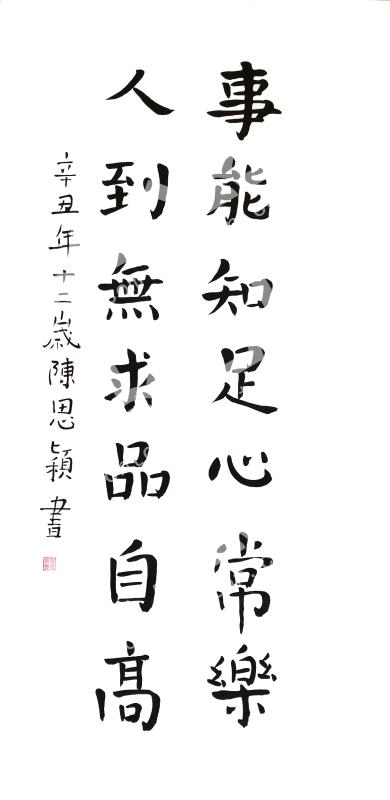 事能知足心常樂
人到無求品自高
辛丑年十二歲陳思穎書